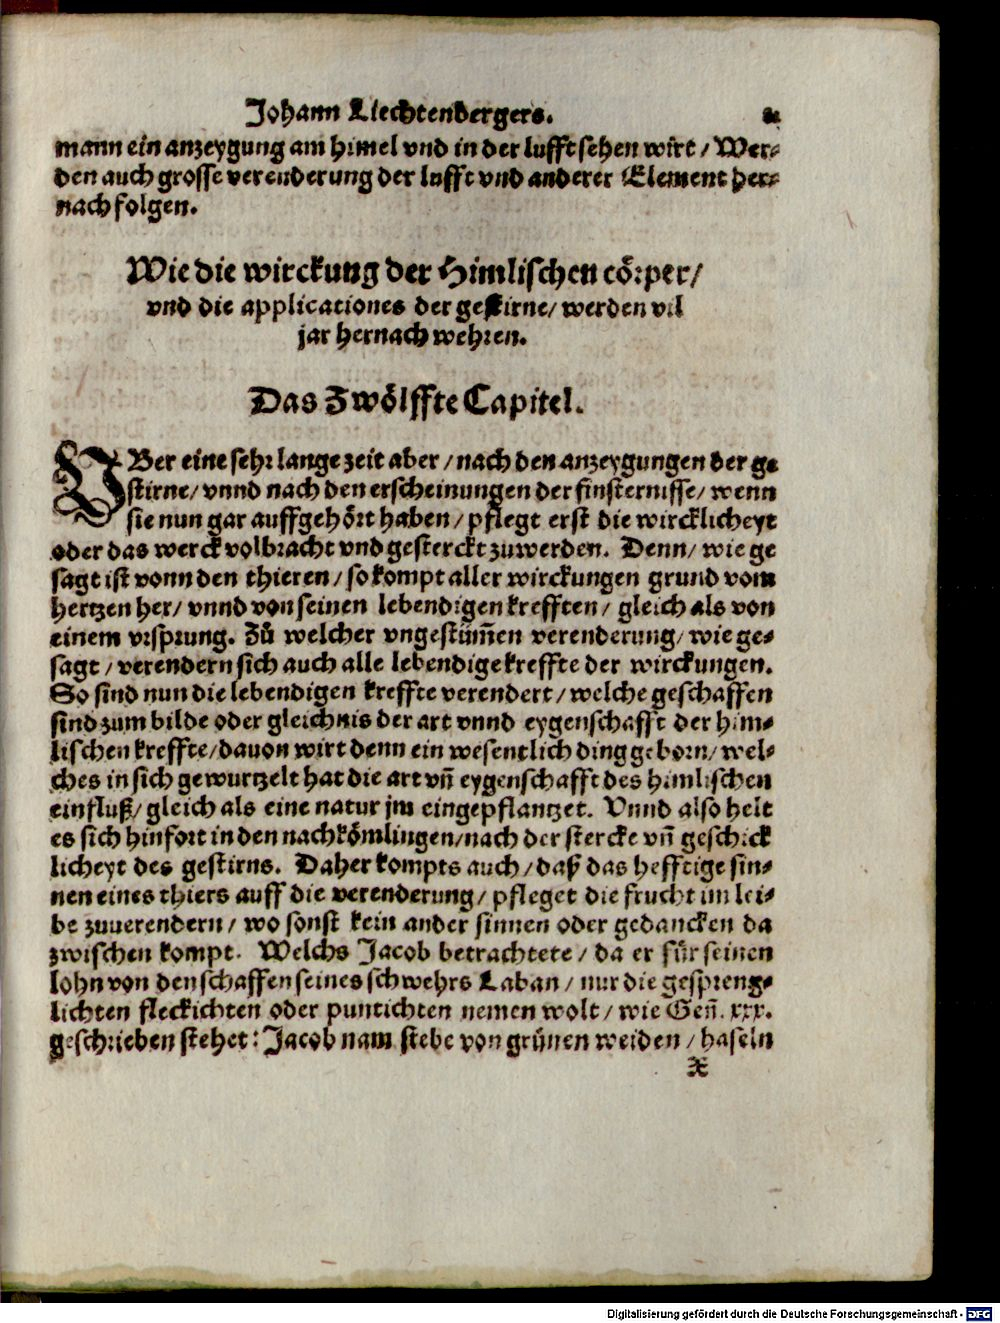 Johann Liechtenbergers.
mann ein anzeygung am himel vnd in der lufft sehen wirt / Wer-
den auch grosse verenderung der lufft vnd anderer Element her-
nach folgen.
Wie die wirckung der Himlischen cörper /
vnd die applicationes der gestirne / werden vil
jar hernach wehren.
Das Zwölffte Capitel.
VBer eine sehr lange zeit aber / nach den anzeygungen der ge
stirne / vnnd nach den erscheinungen der finsternisse / wenn
sie nun gar auffgehört haben / pflegt erst die wircklicheyt
oder das werck volbracht vnd gesterckt zuwerden. Denn / wie ge
sagt ist vonn den thieren / so kompt aller wirckungen grund vom
hertzen her / vnnd von seinen lebendigen krefften / gleich als von
einem vrsprung. Zů welcher vngestüm̃en verenderung / wie ge-
sagt / verendern sich auch alle lebendige kreffte der wirckungen.
So sind nun die lebendigen kreffte verendert / welche geschaffen
sind zum bilde oder gleichnis der art vnnd eygenschafft der him-
lischen kreffte / dauon wirt denn ein wesentlich ding geborn / wel-
ches in sich gewurtzelt hat die art vñ eygenschafft des himlischen
einfluß / gleich als eine natur jm eingepflantzet. Vnnd also helt
es sich hinfort in den nachkömlingen / nach der stercke vñ geschick
licheyt des gestirns. Daher kompts auch / daß das hefftige sin-
nen eines thiers auff die verenderung / pfleget die frucht im lei-
be zuuerendern / wo sonst kein ander sinnen oder gedancken da
zwischen kompt. Welchs Jacob betrachtete / da er für seinen
lohn von den schaffen seines schwehrs Laban / nur die gespreng-
lichten fleckichten oder puntichten nemen wolt / wie Geñ. xxx.
geschrieben stehet: Jacob nam stebe von grünen weiden / haseln
X
Digitalisierung gefördert durch die Deutsche Forschungsgemeinschaft - DFG